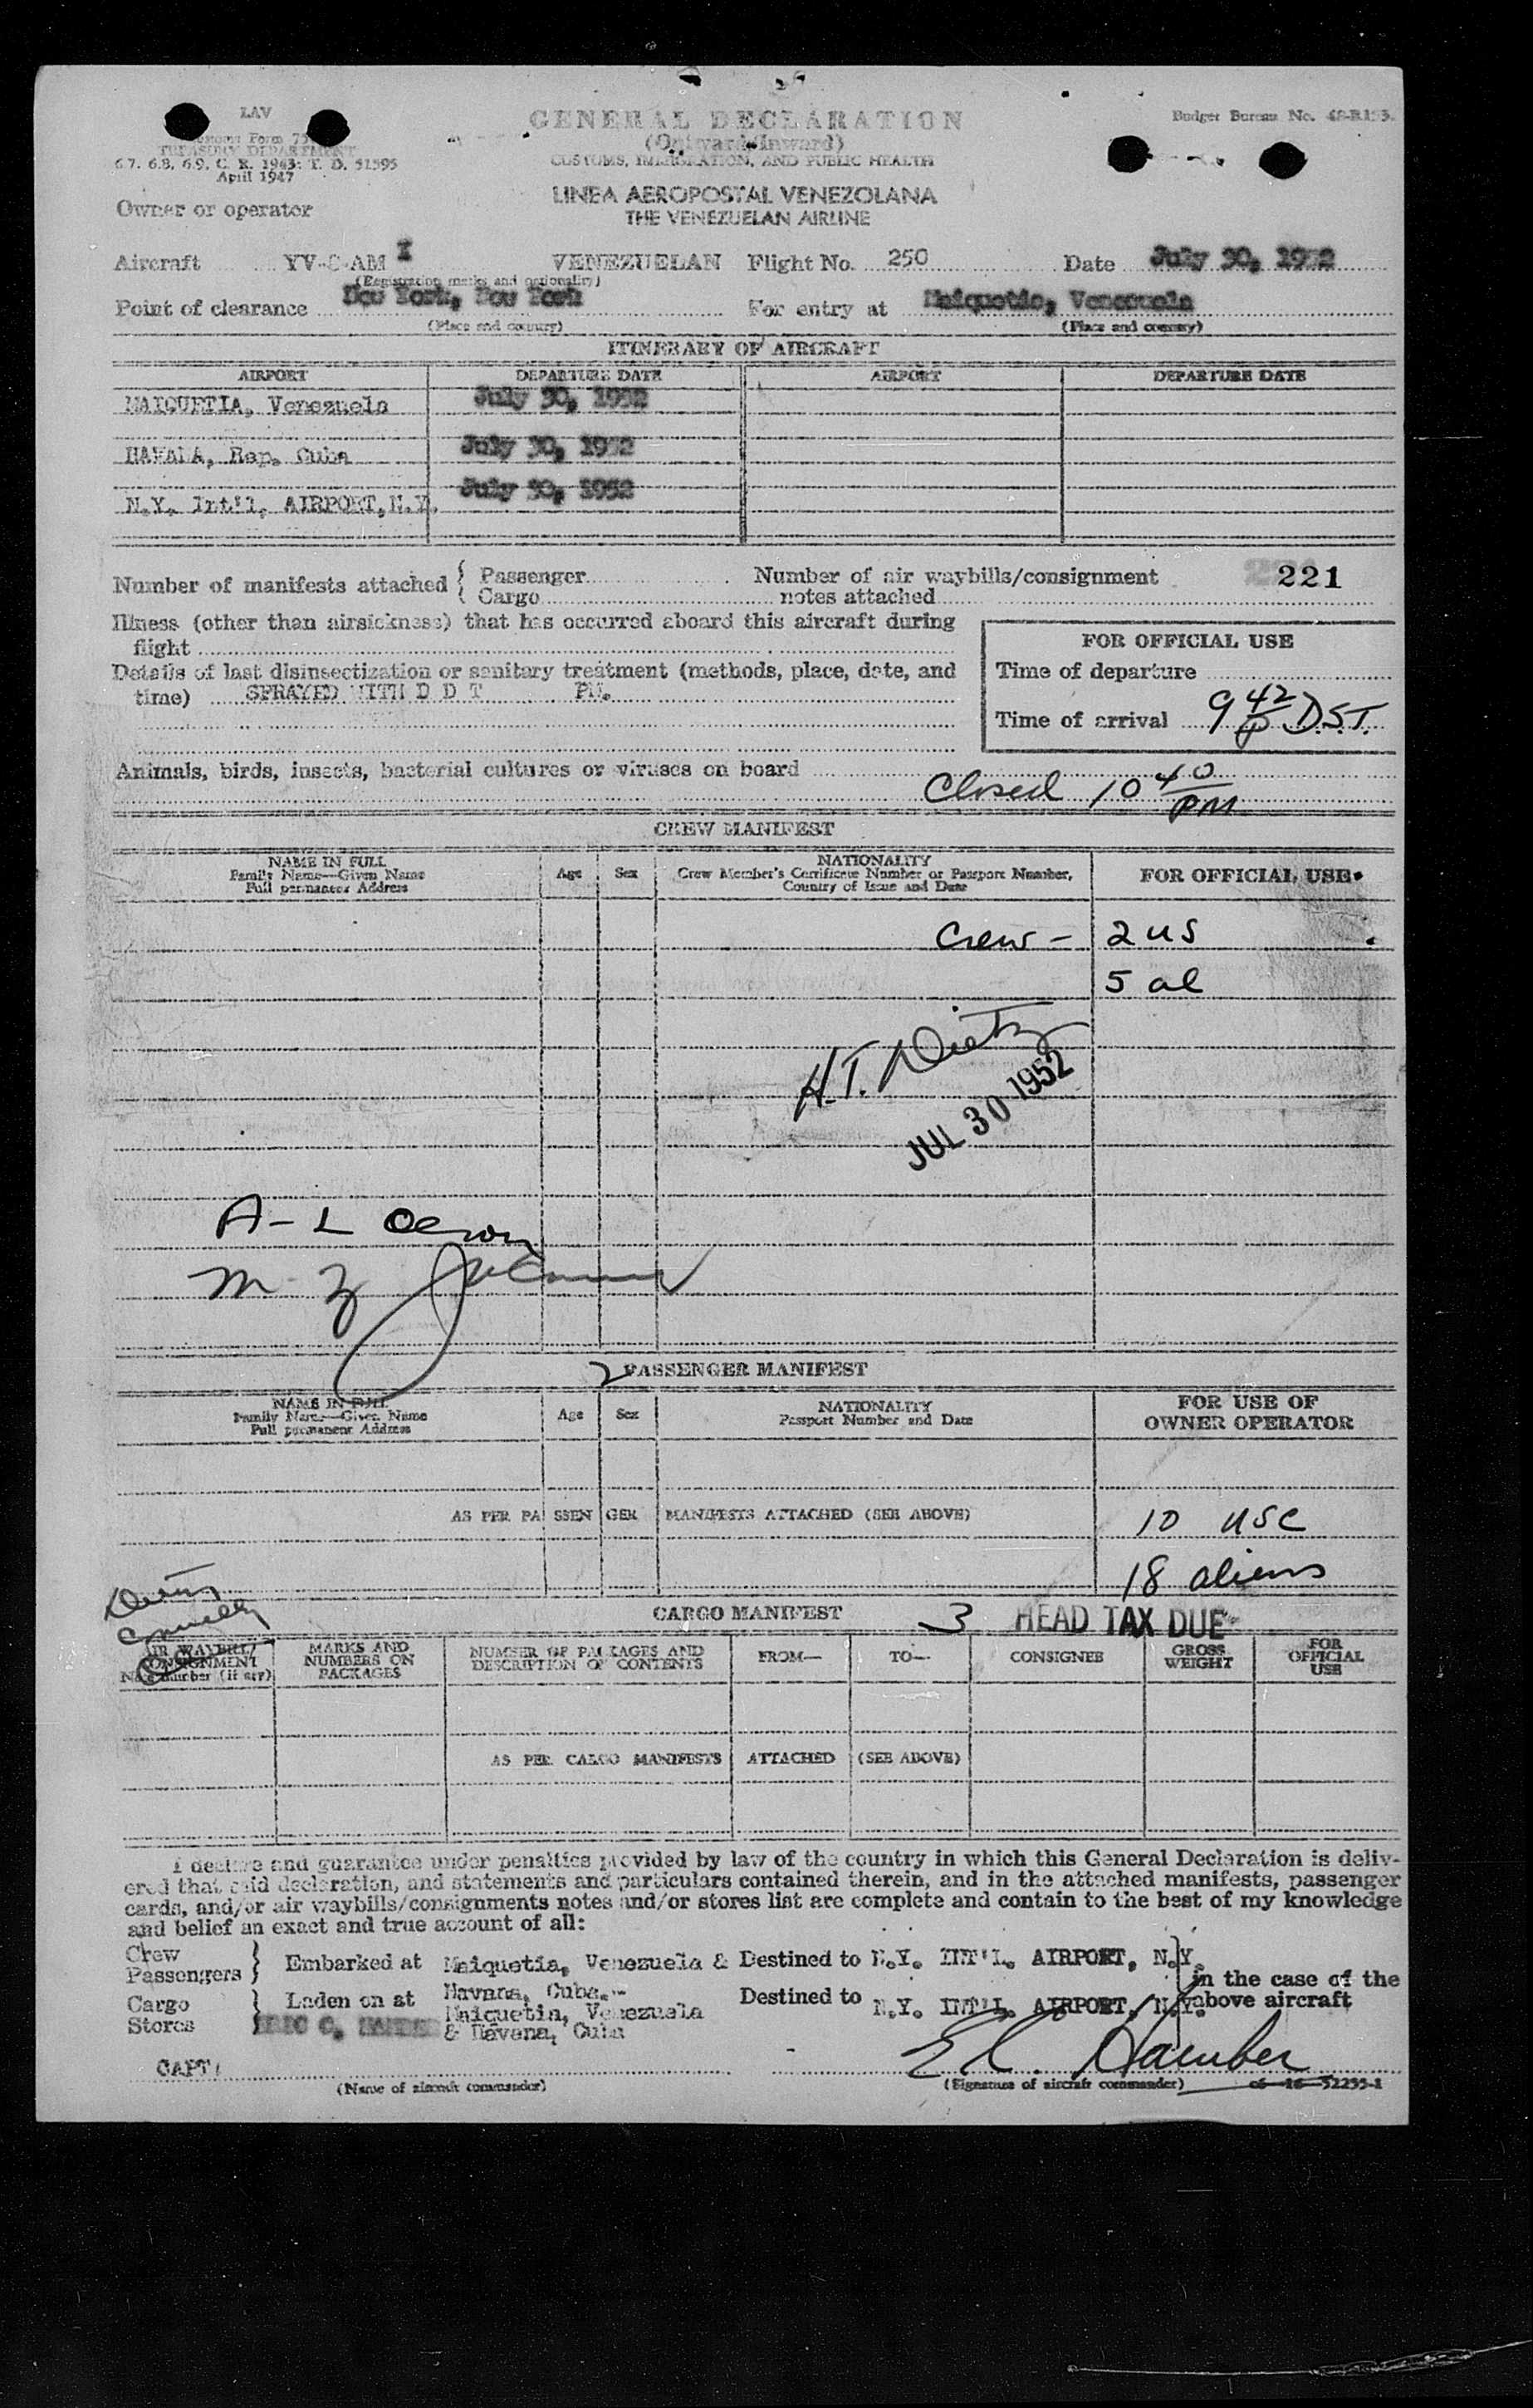 LAV
GENERAL DECLARATION
(Outward/Inward)
CUSTOMS, IMMIGRATION, AND PUBLIC HEALTH
Budget Bureau No.
Customs Form
TREASURY DEPARTMENT
6.7, 6.8, 6.9, C. R. 1943; T. D. 51595
April 1947
LINEA AEROPOSTAL VENEZOLANA
THE VENEZUELAN AIRLINE
Owner or operator
Aircraft YV-C-AM I VENEZUELAN Flight No. 250 Date July 30, 1952
(Registration marks and nationality)
Point of clearance New York, New York For entry at Maiquetia, Venezuela
(Place and country) (Place and country)
ITINERARY OF AIRCRAFT
AIRPORT DEPARTURE DATE AIRPORT DEPARTURE DATE
MAIQUETIA, Venezuela July 30, 1952
HAVANA, Rep. Cuba July 30, 1952
N.Y. Int'l, AIRPORT, N.Y. July 30, 1952
Number of manifests attached { Passenger Number of air waybills/consignment 221
Cargo notes attached
Illness (other than airsickness) that has occurred aboard this aircraft during
flight
FOR OFFICIAL USE
Details of last disinsectization or sanitary treatment (methods, place, date, and
time) SPRAYED WITH D D T PM.
Time of departure
Time of arrival 9 42 P D.S.T.
Animals, birds, insects, bacterial cultures or viruses on board
Closed 10 40 PM
CREW MANIFEST
NAME IN FULL
Family Name—Given Name
Full permanent Address
Age Sex
NATIONALITY
Crew Member's Certificate Number or Passport Number,
Country of Issue and Date
FOR OFFICIAL USE
Crew - 2 US
5 al
H.T. Dietz
JUL 30 1952
A-L
M
2
PASSENGER MANIFEST
NAME IN FULL
Family Name—Given Name
Full permanent Address
Age Sex
NATIONALITY
Passport Number and Date
FOR USE OF
OWNER OPERATOR
AS PER PASSENGER MANIFESTS ATTACHED (SEE ABOVE) 10 USC
18 aliens
CARGO MANIFEST 3 HEAD TAX DUE
AIR WAYBILL/
CONSIGNMENT
Note number (if any)
MARKS AND
NUMBERS ON
PACKAGES
NUMBER OF PACKAGES AND
DESCRIPTION OF CONTENTS
FROM— TO— CONSIGNEE
GROSS
WEIGHT
FOR
OFFICIAL
USE
AS PER CARGO MANIFESTS ATTACHED (SEE ABOVE)
I declare and guarantee under penalties provided by law of the country in which this General Declaration is deliv-
ered that said declaration, and statements and particulars contained therein, and in the attached manifests, passenger
cards, and/or air waybills/consignments notes and/or stores list are complete and contain to the best of my knowledge
and belief an exact and true account of all:
Crew
Passengers } Embarked at Maiquetia, Venezuela & Destined to N.Y. INT'L. AIRPORT, N.Y.
Havana, Cuba.-
in the case of the
above aircraft
Cargo
Stores } Laden on at Maiquetia, Venezuela Destined to N.Y. INT'L. AIRPORT, N.Y.
& Havana, Cuba
CAPT:
(Name of aircraft commander) (Signature of aircraft commander)